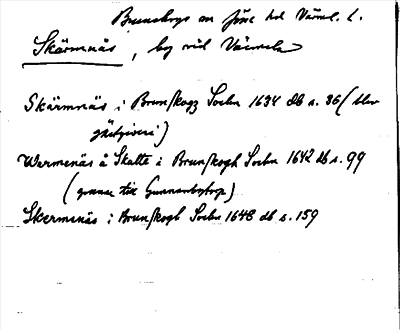 Brunskogs sn Jösse hd Värml. l.
Skärmnäs, by vid Värmeln
Skärmnäs i Brunskogz Sochn 1634 db s. 36 (blev
gästgiveri)
Wermenäs å Skatte i Brunskogh Sochn 1642 db s. 99
(granne till Gunnarbytorp)
Skermenäs i Brunskogh Sochn 1648 db s. 159